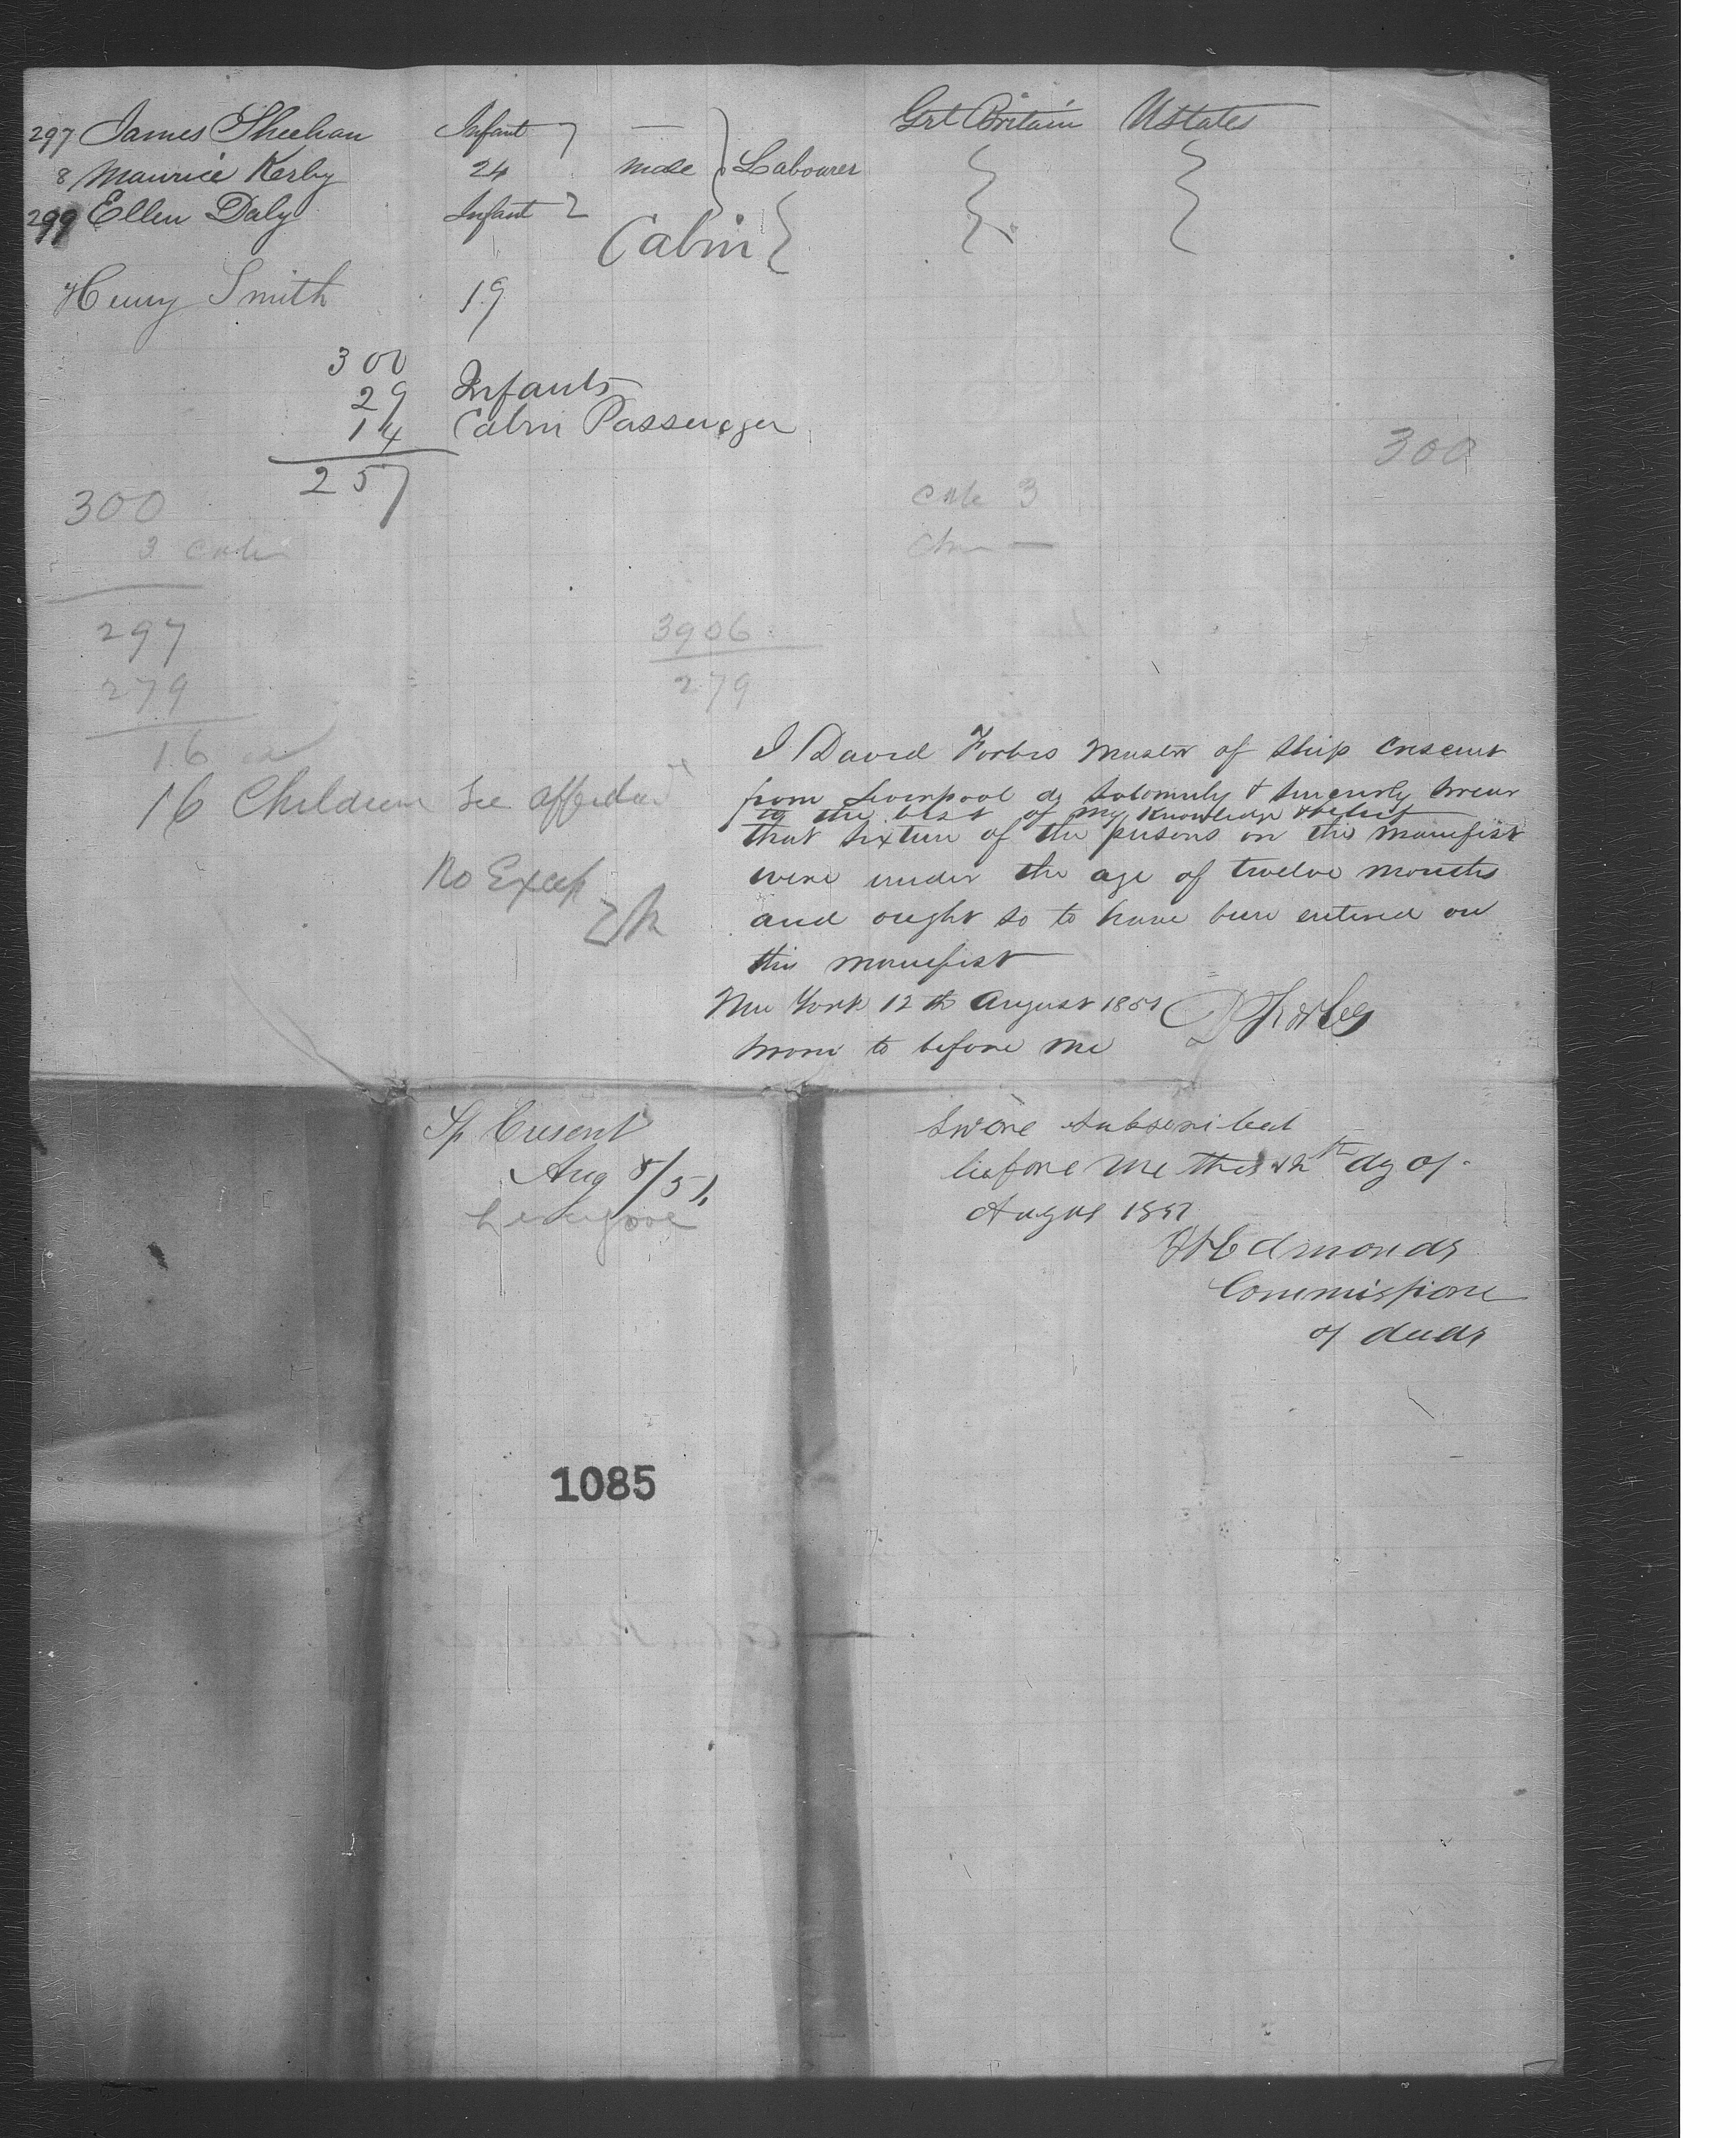 297 James Sheehan Infant — Grt Britain UStates
8 Maurice Kerby 24 male Labourer
299 Ellen Daly Infant
Cabin
Henry Smith 19
300
29 Infants
14 Cabin Passenger
257
300
300
3
297
279
16
3
3906
279
16 Children See affidav
No Excep
I David Forbes Master of Ship Crescent
from Liverpool do Solomnly & Sincerly Swear
to the best of my Knowledge & belief
that sixteen of the persons on this Manifest
were under the age of twelve months
and ought so to have been entered on
this manifest
New York 12th August 1851 D Forbes
Sworn to before me
S/p Cresent
Aug 8/51
Liverpool
Swore Subscribed
before me this 12th dy of
August 1851
Edmonds
Commissione
of deeds
1085